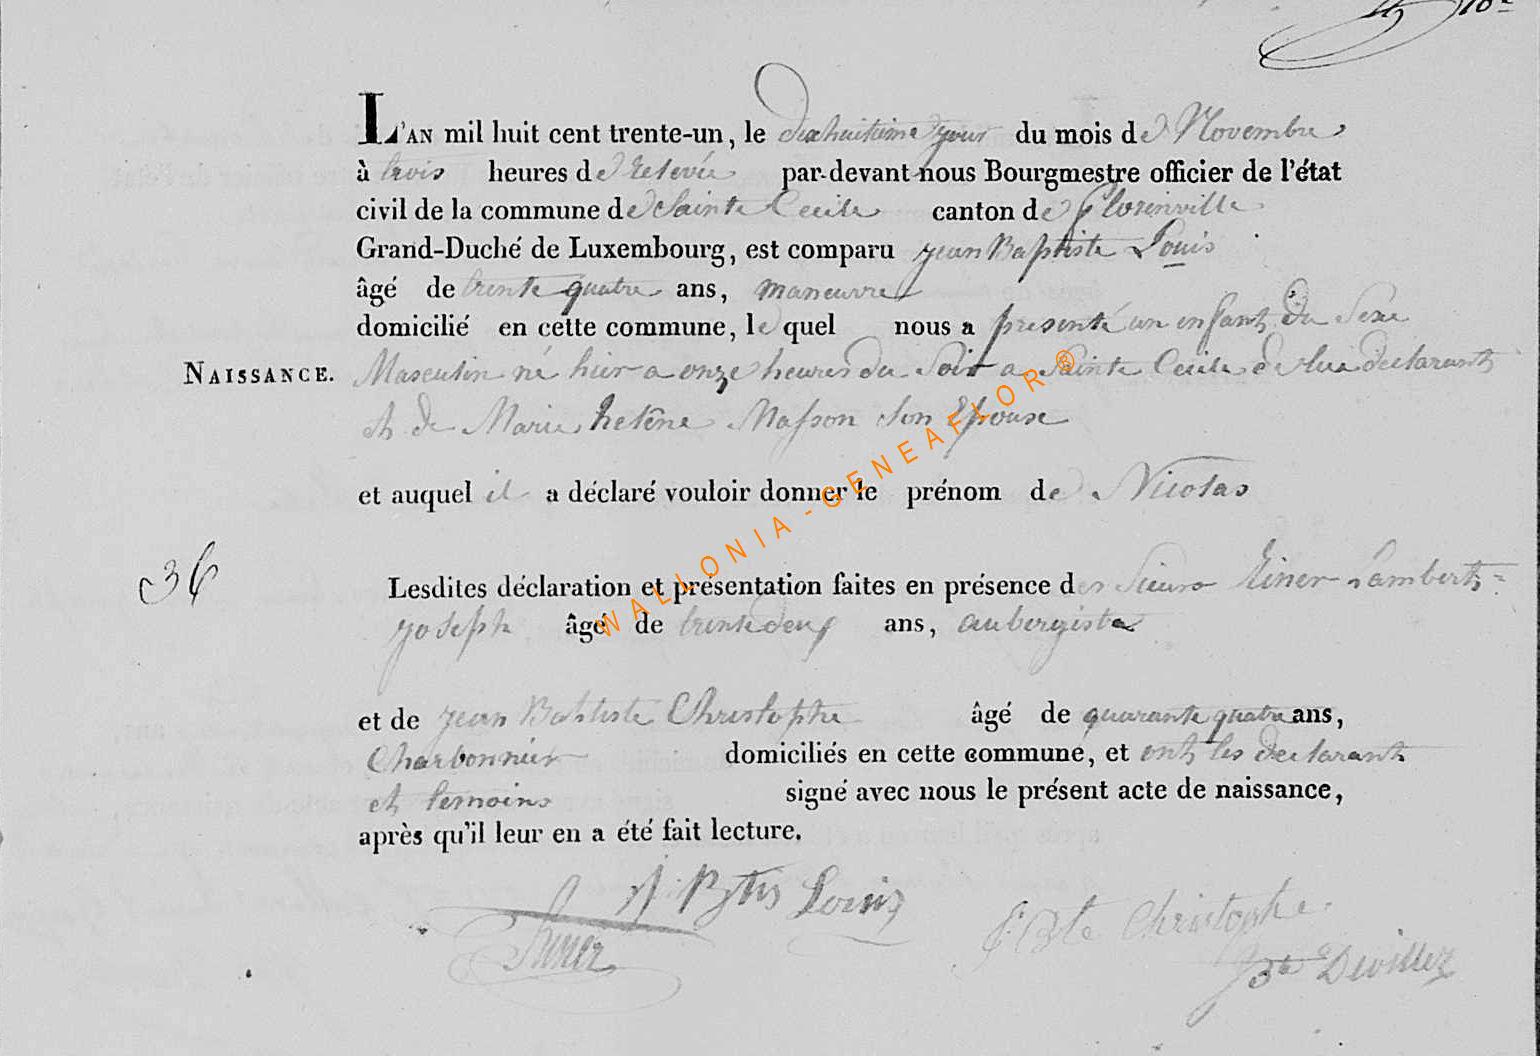 L'AN mil huit cent trente-un, le dixhuitieme jour du mois de Novembre
à trois heures de relevée par-devant nous Bourgmestre officier de l'état
civil de la commune de Sainte Cecile canton de Florenville
Grand-Duché de Luxembourg, est comparu jean Baptiste Louis
âgé de trente quatre ans, maneuvre
domicilié en cette commune, le quel nous a presenté un enfant du Sexe
NAISSANCE. Masculin né hier a onze heures du Soir a Sainte Cecile de lui declarant
et de Marie helêne Masson Son Epouse
et auquel il a déclaré vouloir donner le prénom de Nicolas
36
Lesdites déclaration et présentation faites en présence des Sieurs Lambert=
joseph âgé de trente deux ans, aubergiste
et de jean Batiste Christophe âgé de quarante quatre ans,
Charbonnier domiciliés en cette commune, et ont les declarant
et temoins signé avec nous le présent acte de naissance,
après qu'il leur en a été fait lecture.
J. Bte Louis
J Bte Christophe.
Devillez
WALLONIA-GENEAFLOR®